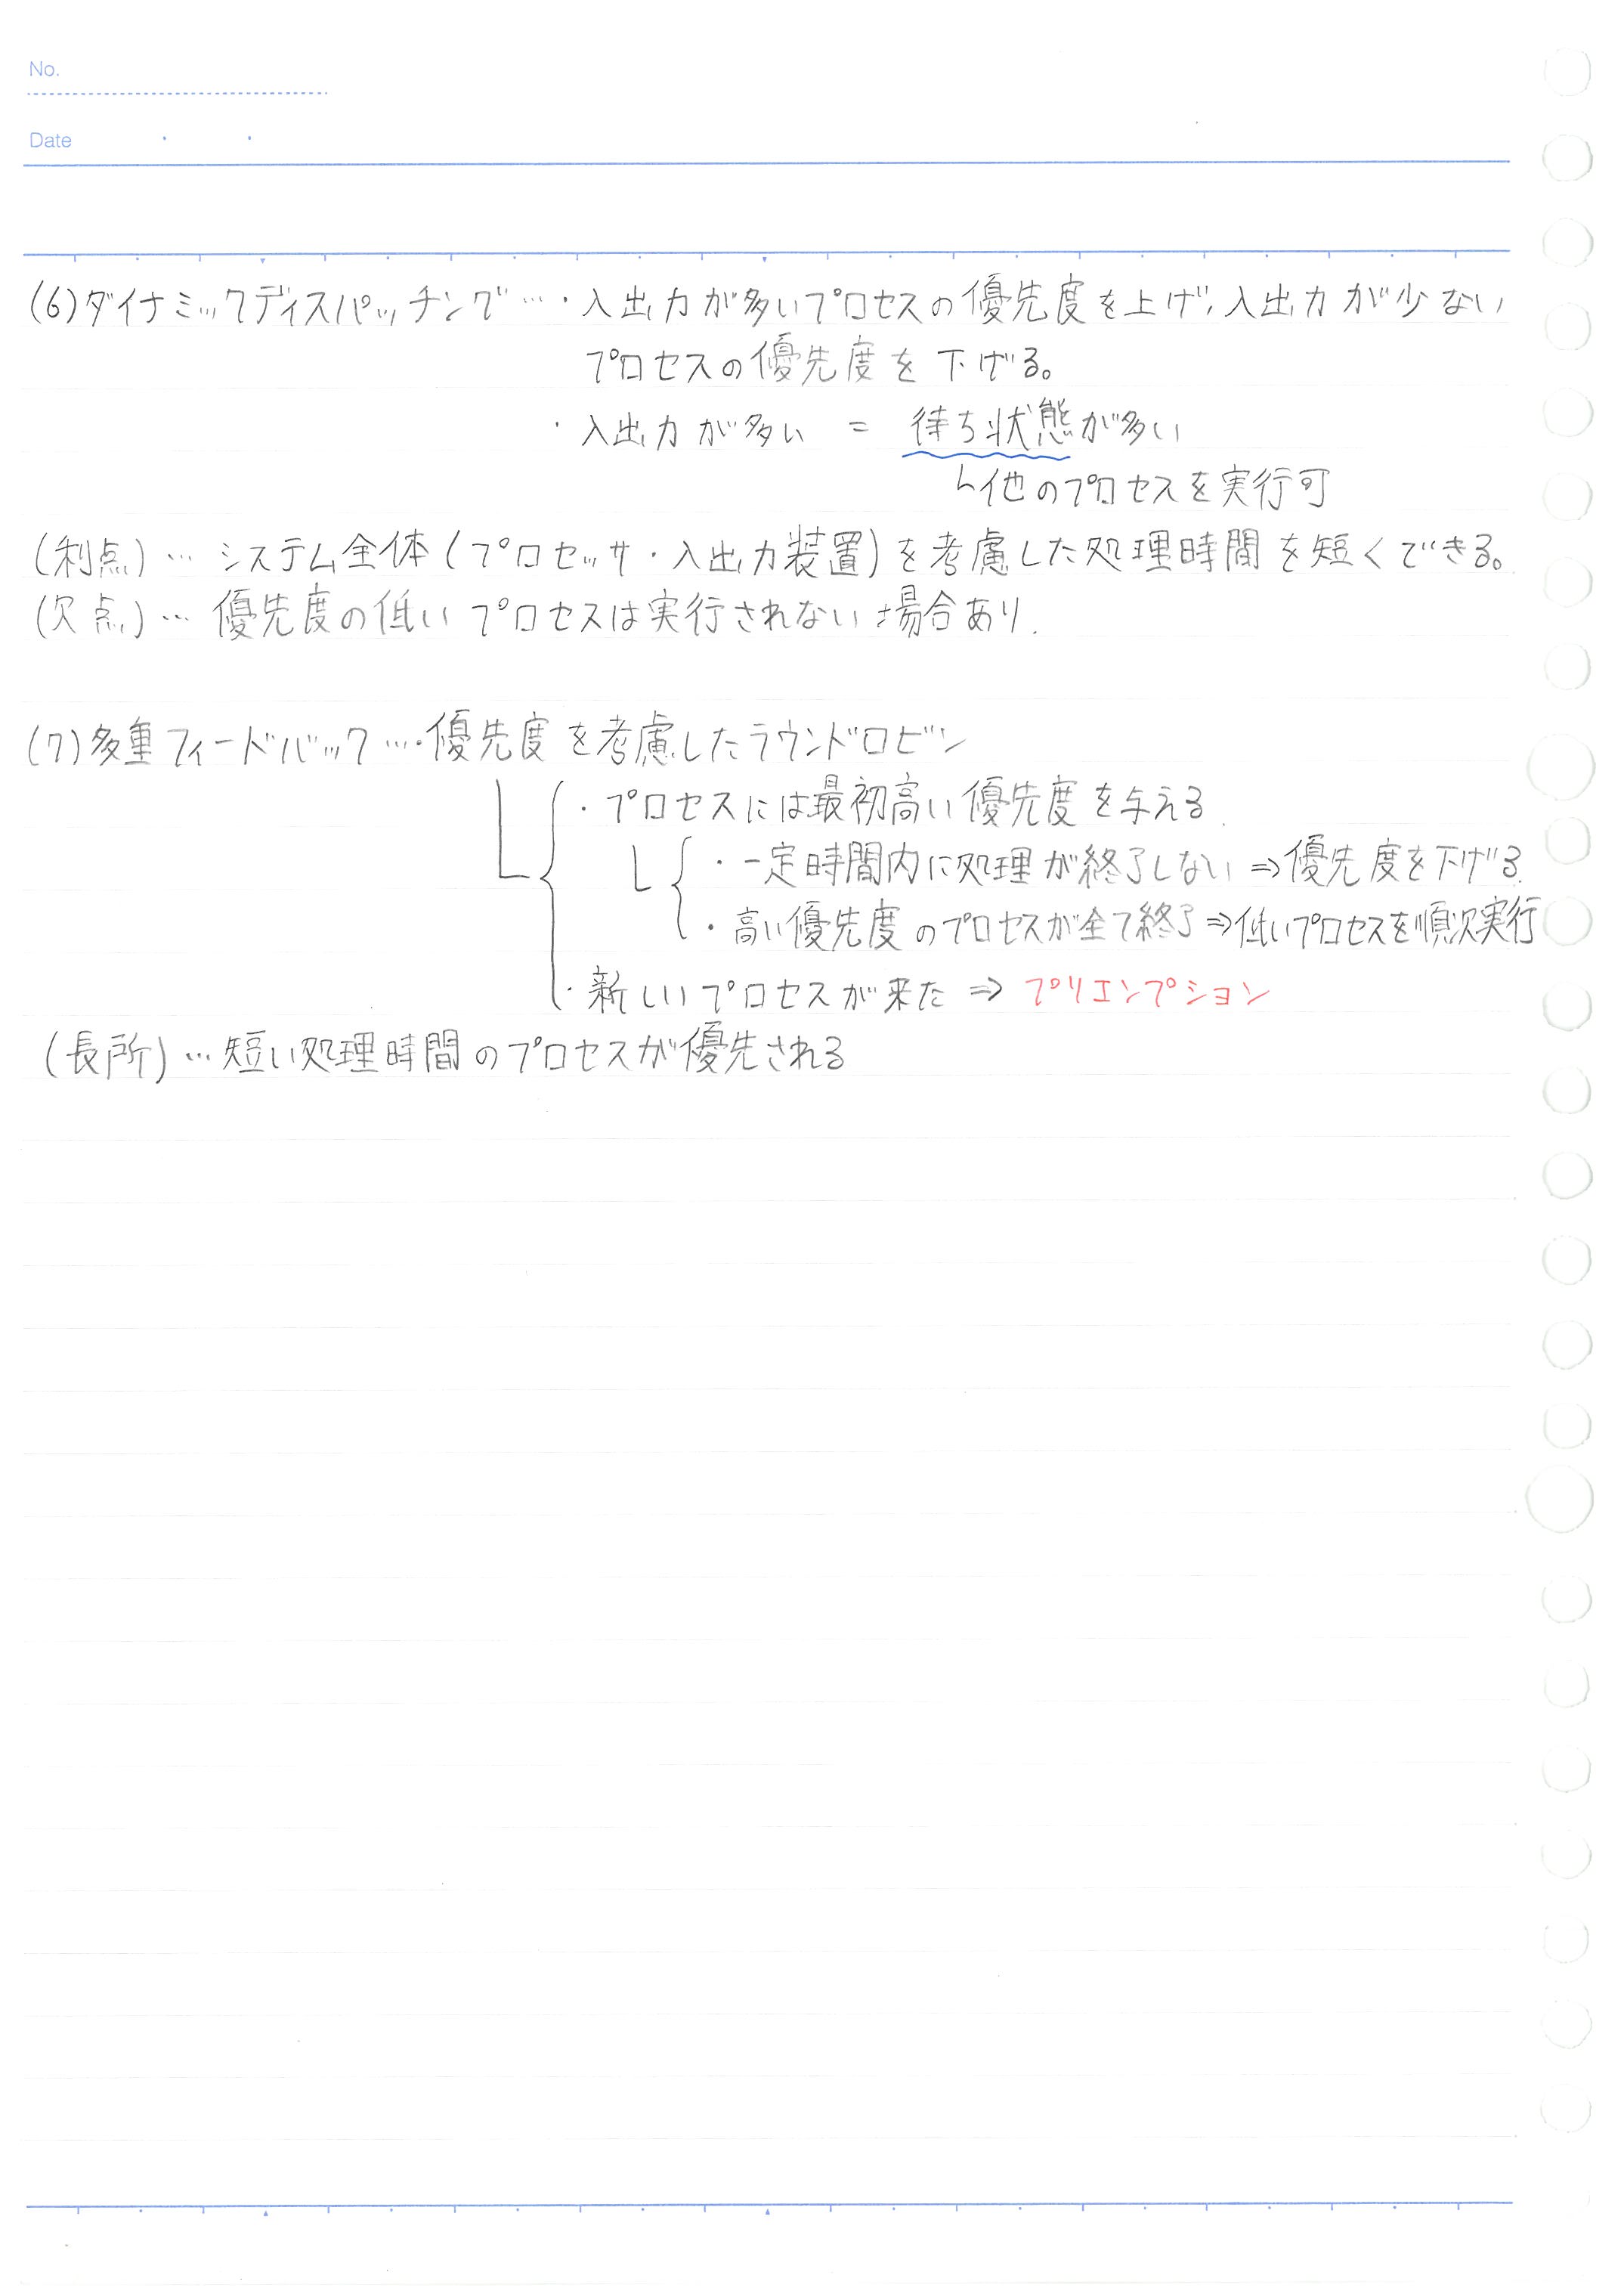 No.
Date
(6)ダイナミックディスパッチング…・入出力が多いプロセスの優先度を上げ、入出力が少ない
プロセスの優先度を下げる。
・入出力が多い = 待ち状態が多い
└他のプロセスを実行可
(利点)… システム全体(プロセッサ・入出力装置)を考慮した処理時間を短くできる。
(欠点)… 優先度の低いプロセスは実行されない場合あり.
(7)多重フィードバック…・優先度を考慮したラウンドロビン
・プロセスには最初高い優先度を与える.
・一定時間内に処理が終了しない⇒優先度を下げる.
・高い優先度のプロセスが全て終了⇒低いプロセスを順次実行
・新しいプロセスが来た ⇒ プリエンプション
(長所)…短い処理時間のプロセスが優先される